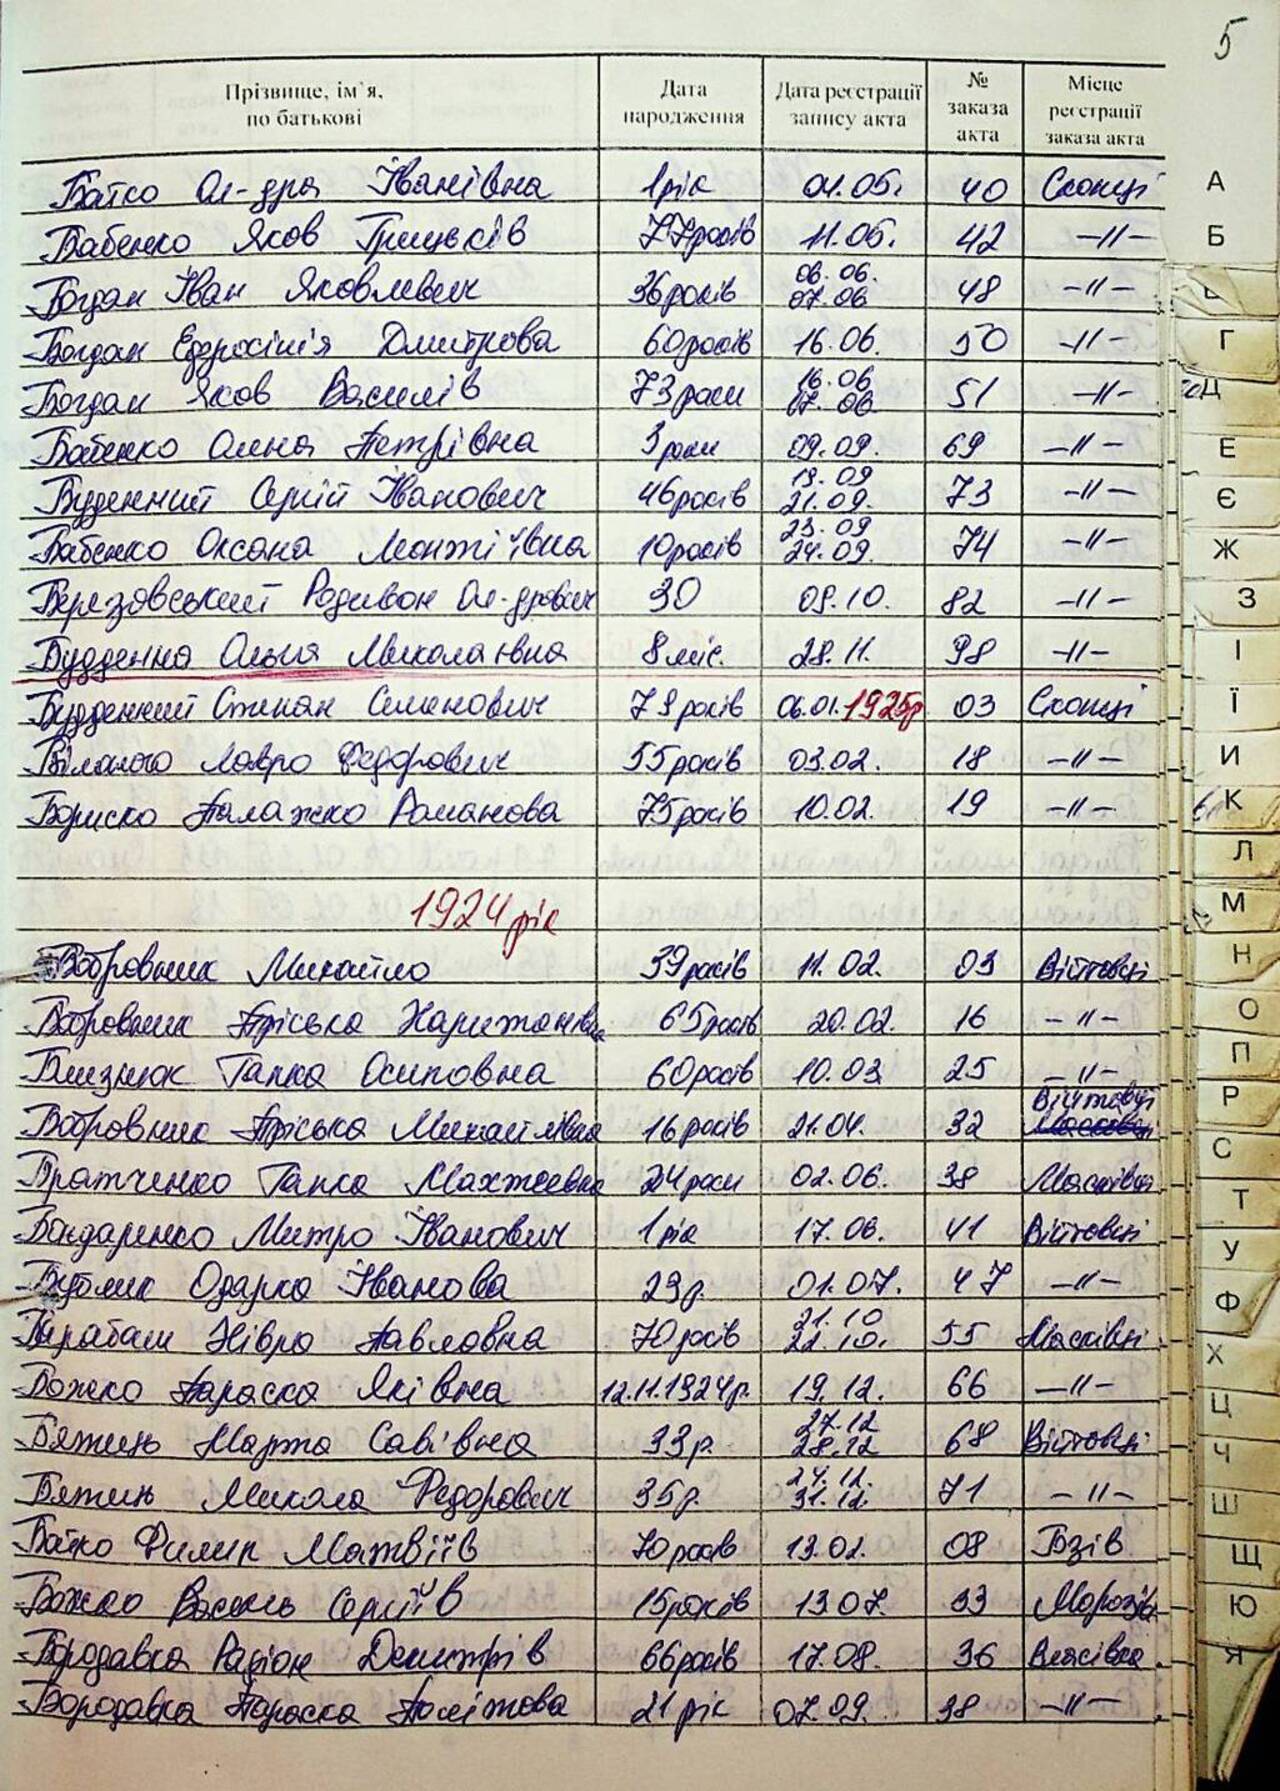 5
Прізвище, ім`я, по батькові Дата народження Дата реєстрації запису акта № заказа акта Місце реєстрації заказа акта
Бойко Ол-дра Іванівна 1рік 04.05. 40 Скопці
Бабенко Яков Грицьків 77років 11.05. 42 -//-
Богдан Іван Яковлевич 36років 06.06. 07.06 48 -//-
Богдан Єфросінія Дмитрова 60років 16.06. 50 -//-
Богдан Яков Василів 73роки 16.06 17.06 51 -//-
Бабенко Олена Петрівна 3роки 09.09. 69 -//-
Буденний Сергій Іванович 46років 19.09 21.09. 73 -//-
Бабенко Оксана 10років 23.09 24.09. 74 -//-
Березовський Родивон Ол-дрович 30 09.10. 82 -//-
Будденна Ольга Миколаївна 8міс. 28.11. 98 -//-
Будденний Степан Семенович 79років 06.01.1925р 03 Скопці
Лавро Федорович 55років 03.02. 18 -//-
Бориско Палажка Романова 75років 10.02. 19 -//-
1924 рік
Бобровник Михайло 39років 11.02. 03 Війтовці
Бобровник Пріська 65років 20.02. 16 -//-
Близнюк Гапка Осиповна 60років 10.03 25 -//-
Бобровник Пріська Михайлівна 16років 21.04. 32 Війтовці
Братченко Гапка Махтеевна 24роки 02.06. 38 Масківці
Бондаренко Митро Іванович 1рік 17.06. 41 Війтовці
Одарка Іванова 29р. 01.07. 47 -//-
Барабаш Хівря Павловна 70років 21.10 22.10. 55 Масківці
Божко Параска Яківна 12.11.1924р. 19.12. 66 -//-
Бятинь Марта Савівна 33р. 27.12 28.12 68 Війтовці
Бятинь Микола Федорович 35р. 71 -//-
Бойко Филип Матвіїв 70років 13.02. 08 Гзів
Божко Василь Сергіїв 15років 13.07. 33 Морозів
Бородавка Радіон Дмитрів 66років 17.08. 36 Власівка
Бородавка Параска 21 рік 07.09. 38 -//-
А
Б
Г
Д
Е
Є
Ж
З
І
Ї
И
К
Л
М
Н
О
П
Р
С
Т
У
Ф
Х
Ц
Ч
Ш
Щ
Ю
Я